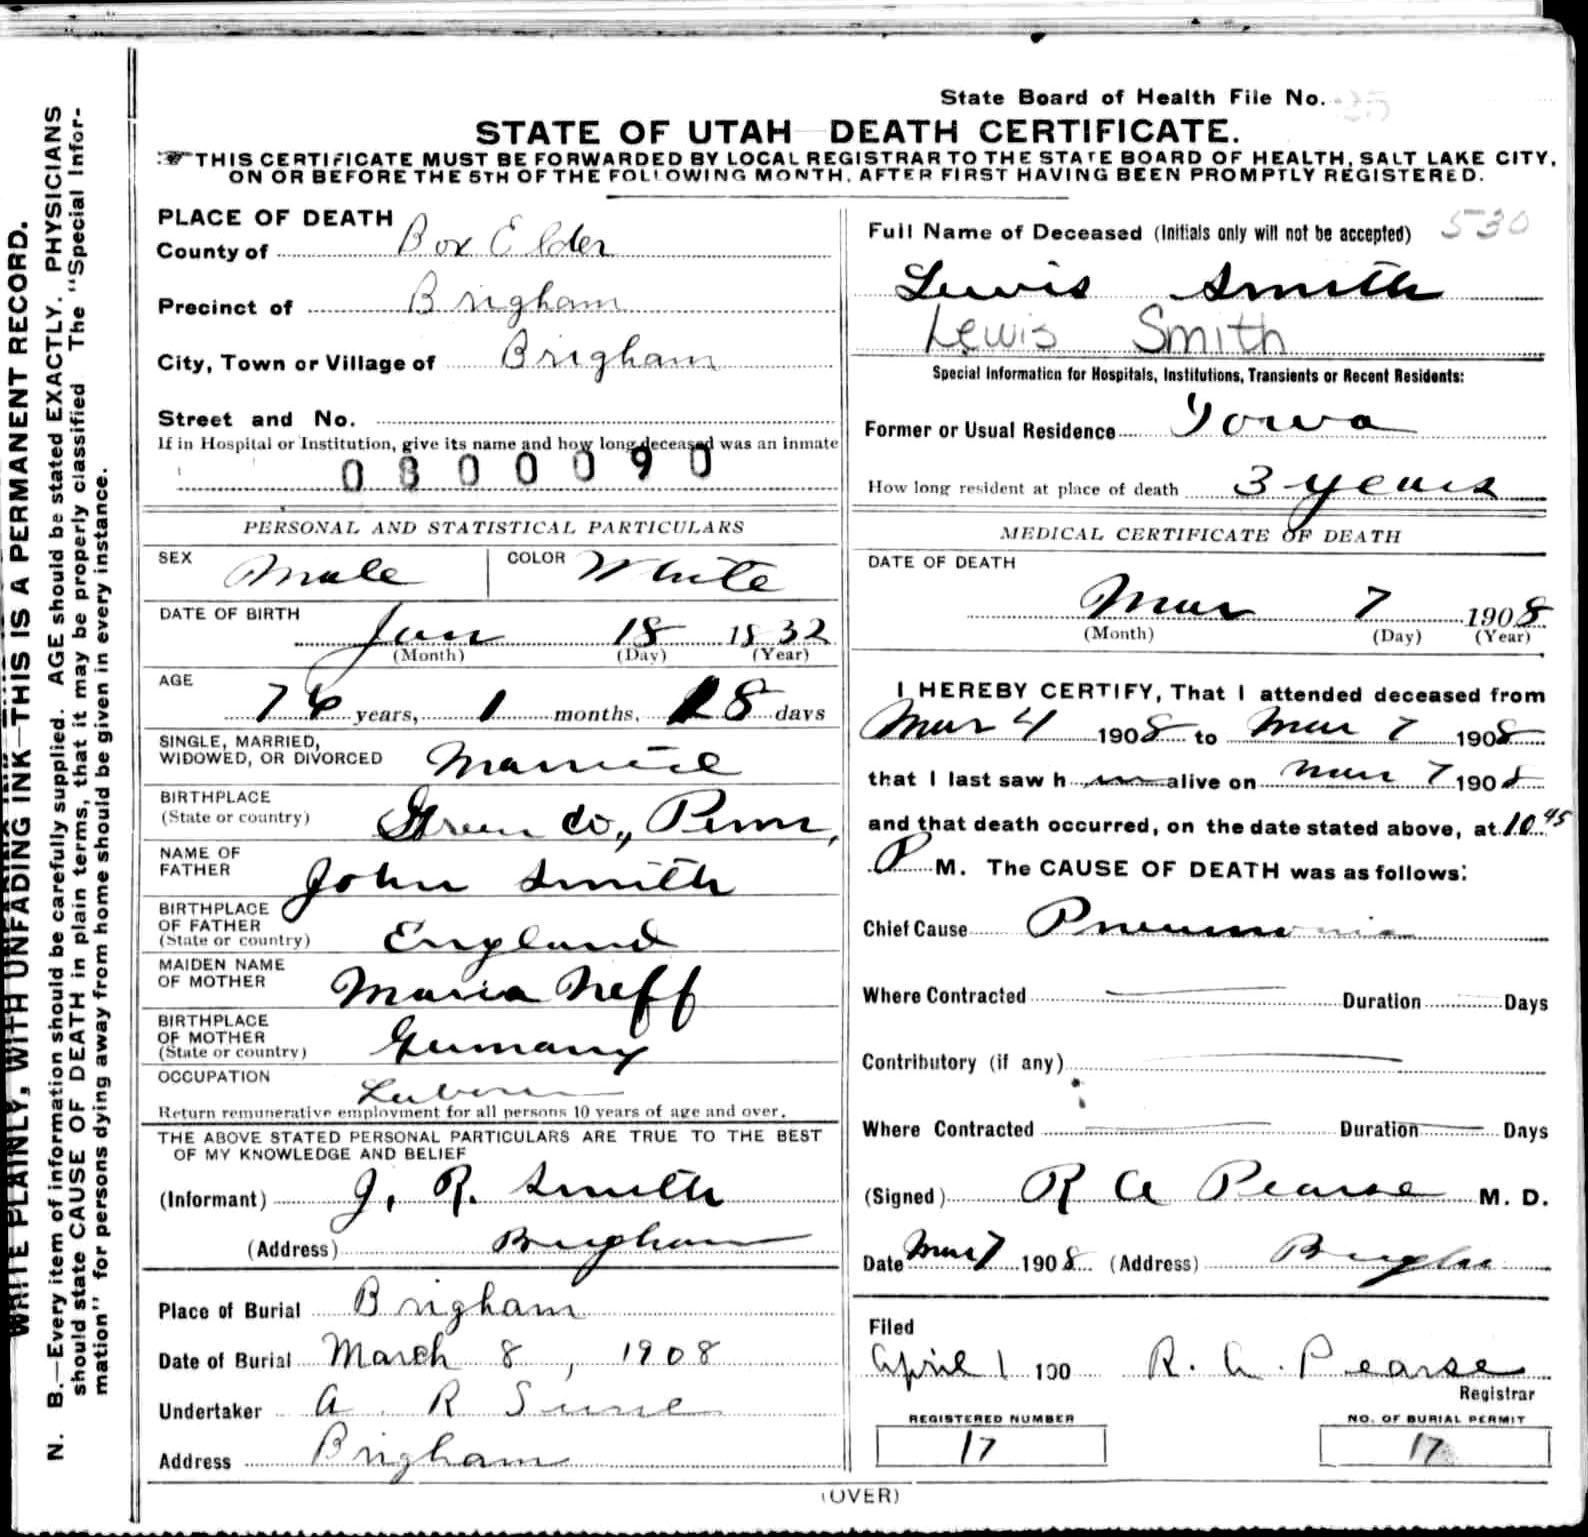 WRITE PLAINLY, WITH UNFADING INK—THIS IS A PERMANENT RECORD.
N. B.—Every item of information should be carefully supplied. AGE should be stated EXACTLY. PHYSICIANS
should state CAUSE OF DEATH in plain terms, that it may be properly classified The "Special Infor-
mation" for persons dying away from home should be given in every instance.
State Board of Health File No.
STATE OF UTAH DEATH CERTIFICATE.
THIS CERTIFICATE MUST BE FORWARDED BY LOCAL REGISTRAR TO THE STATE BOARD OF HEALTH, SALT LAKE CITY,
ON OR BEFORE THE 5TH OF THE FOLLOWING MONTH, AFTER FIRST HAVING BEEN PROMPTLY REGISTERED.
PLACE OF DEATH
County of Box Elder
Precinct of Brigham
City, Town or Village of Brigham
Street and No.
If in Hospital or Institution, give its name and how long deceased was an inmate
0 8 0 0 0 9 0
PERSONAL AND STATISTICAL PARTICULARS
SEX Male COLOR White
DATE OF BIRTH
Jan 18 1832
(Month) (Day) (Year)
AGE
76 years, 1 months, 18 days
SINGLE, MARRIED,
WIDOWED, OR DIVORCED Married
BIRTHPLACE
(State or country) Green Co., Penn,
NAME OF
FATHER John Smith
BIRTHPLACE
OF FATHER
(State or country) England
MAIDEN NAME
OF MOTHER Maria Neff
BIRTHPLACE
OF MOTHER
(State or country) Germany
OCCUPATION Laborer
Return remunerative employment for all persons 10 years of age and over.
THE ABOVE STATED PERSONAL PARTICULARS ARE TRUE TO THE BEST
OF MY KNOWLEDGE AND BELIEF
(Informant) J. R. Smith
(Address) Brigham
Place of Burial Brigham
Date of Burial March 8, 1908
Undertaker A R
Address Brigham
Full Name of Deceased (Initials only will not be accepted) 530
Lewis Smith
Lewis Smith
Special Information for Hospitals, Institutions, Transients or Recent Residents:
Former or Usual Residence Iowa
How long resident at place of death 3 years
MEDICAL CERTIFICATE OF DEATH
DATE OF DEATH
Mar 7 1908
(Month) (Day) (Year)
I HEREBY CERTIFY, That I attended deceased from
Mar 4 1908 to Mar 7 1908
that I last saw h im alive on Mar 7 1908
and that death occurred, on the date stated above, at 10.45
P M. The CAUSE OF DEATH was as follows:
Chief Cause Pneumonia
Where Contracted Duration Days
Contributory (if any)
Where Contracted Duration Days
(Signed) R A Pearse M. D.
Date Mar 7 1908 (Address) Brigham
Filed
April 1 190 R. A. Pearse
Registrar
REGISTERED NUMBER
17
NO. OF BURIAL PERMIT
17
(OVER)